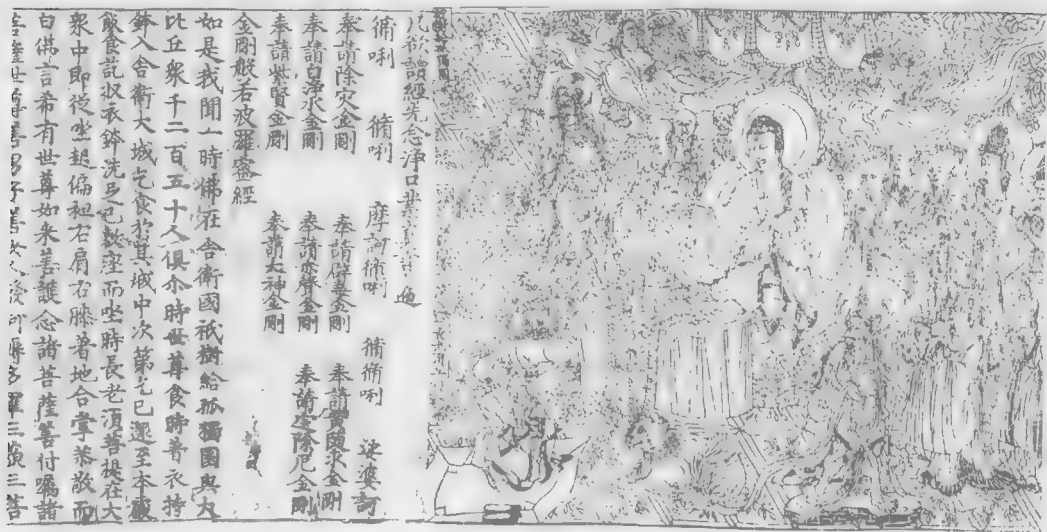 凡欲讀經先念淨口業真言一遍
脩唎 脩唎 摩訶脩唎 脩脩唎 娑婆訶
奉請除灾金剛 奉請辟毒金剛 奉請黃隨求金剛
奉請白淨水金剛 奉請赤聲金剛 奉請定除厄金剛
奉請紫賢金剛 奉請大神金剛
金剛般若波羅蜜經
如是我聞一時佛在舍衛國祇樹給孤獨園與大
比丘衆千二百五十人俱尒時世尊食時著衣持
鉢入舍衛大城乞食於其城中次第乞已還至本處
飯食訖収衣鉢洗足已敷座而坐時長老湏菩提在大
衆中即從坐起偏袒右肩右膝著地合掌恭敬而
白佛言希有世尊如来善護念諸菩薩善付囑諸
菩薩世尊善男子善女人發阿耨多羅三藐三菩